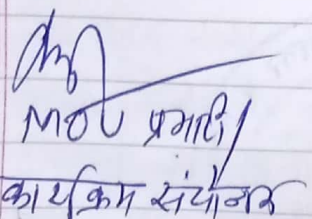 MOU प्रभारी
कार्यक्रम संयोजक